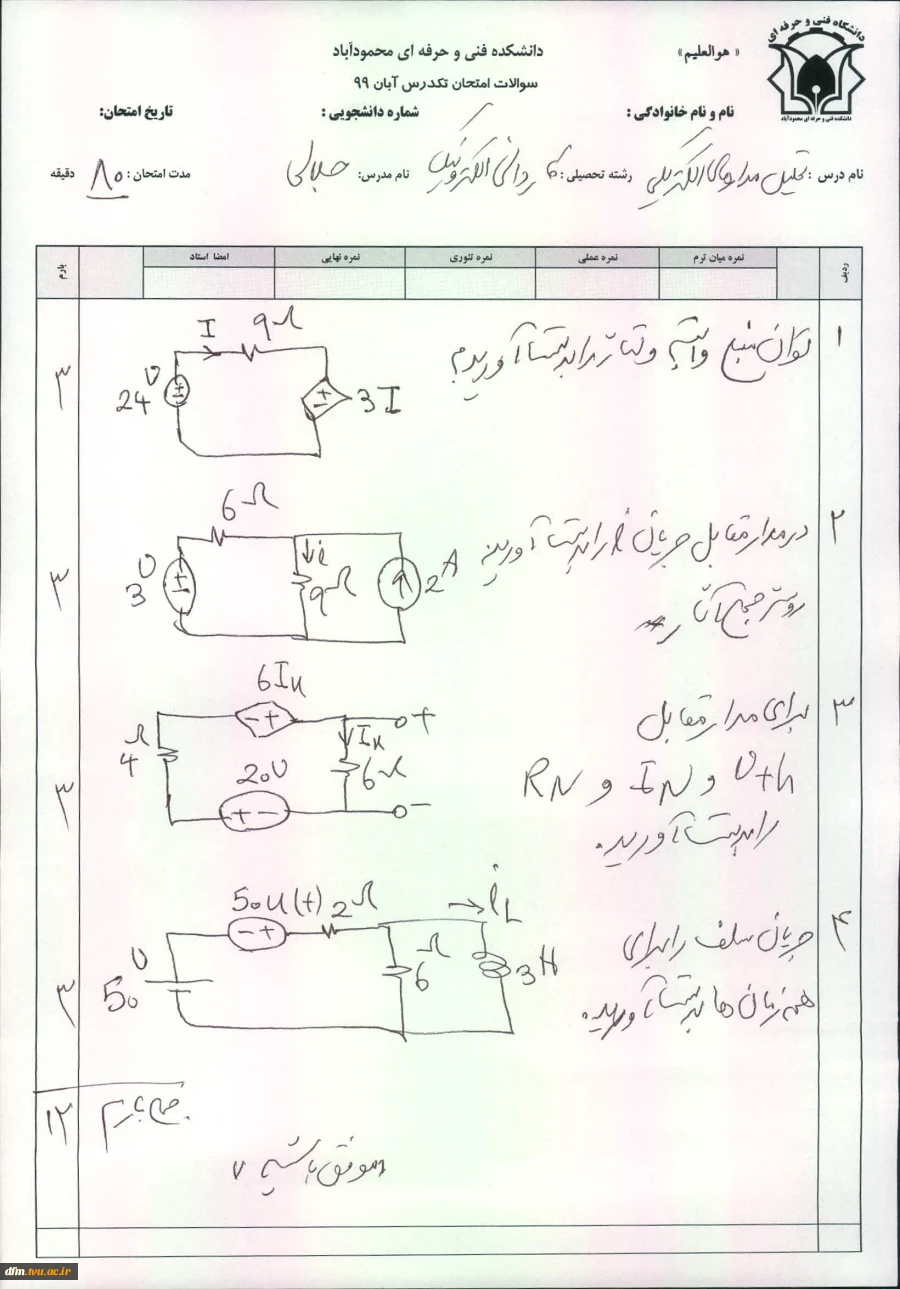 دانشگاه فنی و حرفه ای
دانشکده فنی و حرفه ای محمودآباد
« هوالعلیم»
دانشکده فنی و حرفه ای محمودآباد
سوالات امتحان تکدرس آبان ۹۹
نام و نام خانوادگی : شماره دانشجویی : تاریخ امتحان:
نام درس : تحلیل مدارهای الکتریکی رشته تحصیلی : کاردانی الکترونیک نام مدرس: جلالی مدت امتحان : ۸۰ دقیقه
ردیف نمره میان ترم نمره عملی نمره تئوری نمره نهایی امضا استاد بارم
۱ توان منبع وابسته و را بدست آورید ۳
I 9Ω
24 V 3I
۲ در مدار مقابل جریان i را بدست آورید ۳
روش جمع آثار
6Ω
3 V i 9Ω 2 A
۳ برای مدار مقابل
Vth و IN و RN
را بدست آورید. ۳
6Ix
4 Ω Ix 6Ω +
20V
+ - -
۴ جریان سلف را برای
همه زمان ها بدست آورید. ۳
50u(t) 2Ω iL
50 V 6 Ω 3H
جمع بارم ۱۲
موفق باشید
dfm.tvu.ac.ir